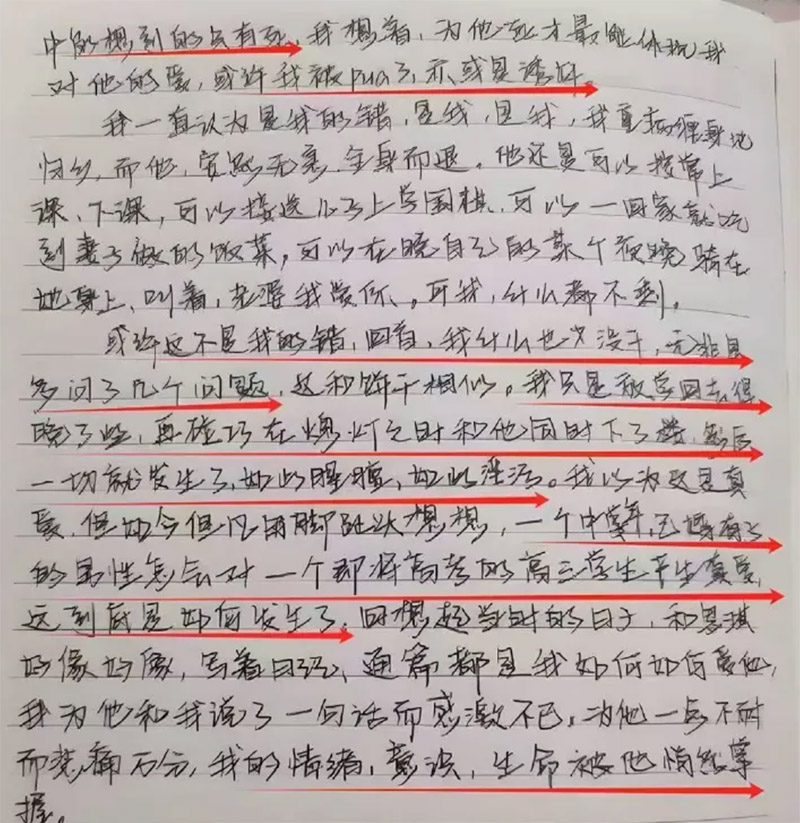 中的想到的只有死。我想着，为他死才最能体现我
对他的爱，或许我被pua了，亦或是诱奸。
我一直认为是我的错，是我，是我，我重病缠身地
归乡，而他，安然无恙，全身而退。他还是可以按常上
课、下课，可以接送儿子上学围棋，可以一回家就吃
到妻子做的饭菜，可以在晚自习的某个夜晚骑在
她身上、叫着，老婆我爱你、。可我，什么都不剩。
或许这不是我的错，回首，我什么也没干，无非是
多问了几个问题，这和饼干相似。我只是被学回去得
晚了些，再碰巧在熄灯之时和他同时下了楼，然后
一切就发生了，如此腥膻，如此淫污。我以为这是真
爱，但如今但凡用脚趾头想想，一个中年，已婚有子
的男性怎会对一个即将高考的高三学生产生真爱，
这到底是如何发生了。回想起当时的日子，和思琪
好像好像，写着日记，通篇都是我如何如何爱他，
我为他和我说了一句话而感激不已，为他一点不耐
而悲痛万分，我的情绪，意识，生命被他悄然掌
握。